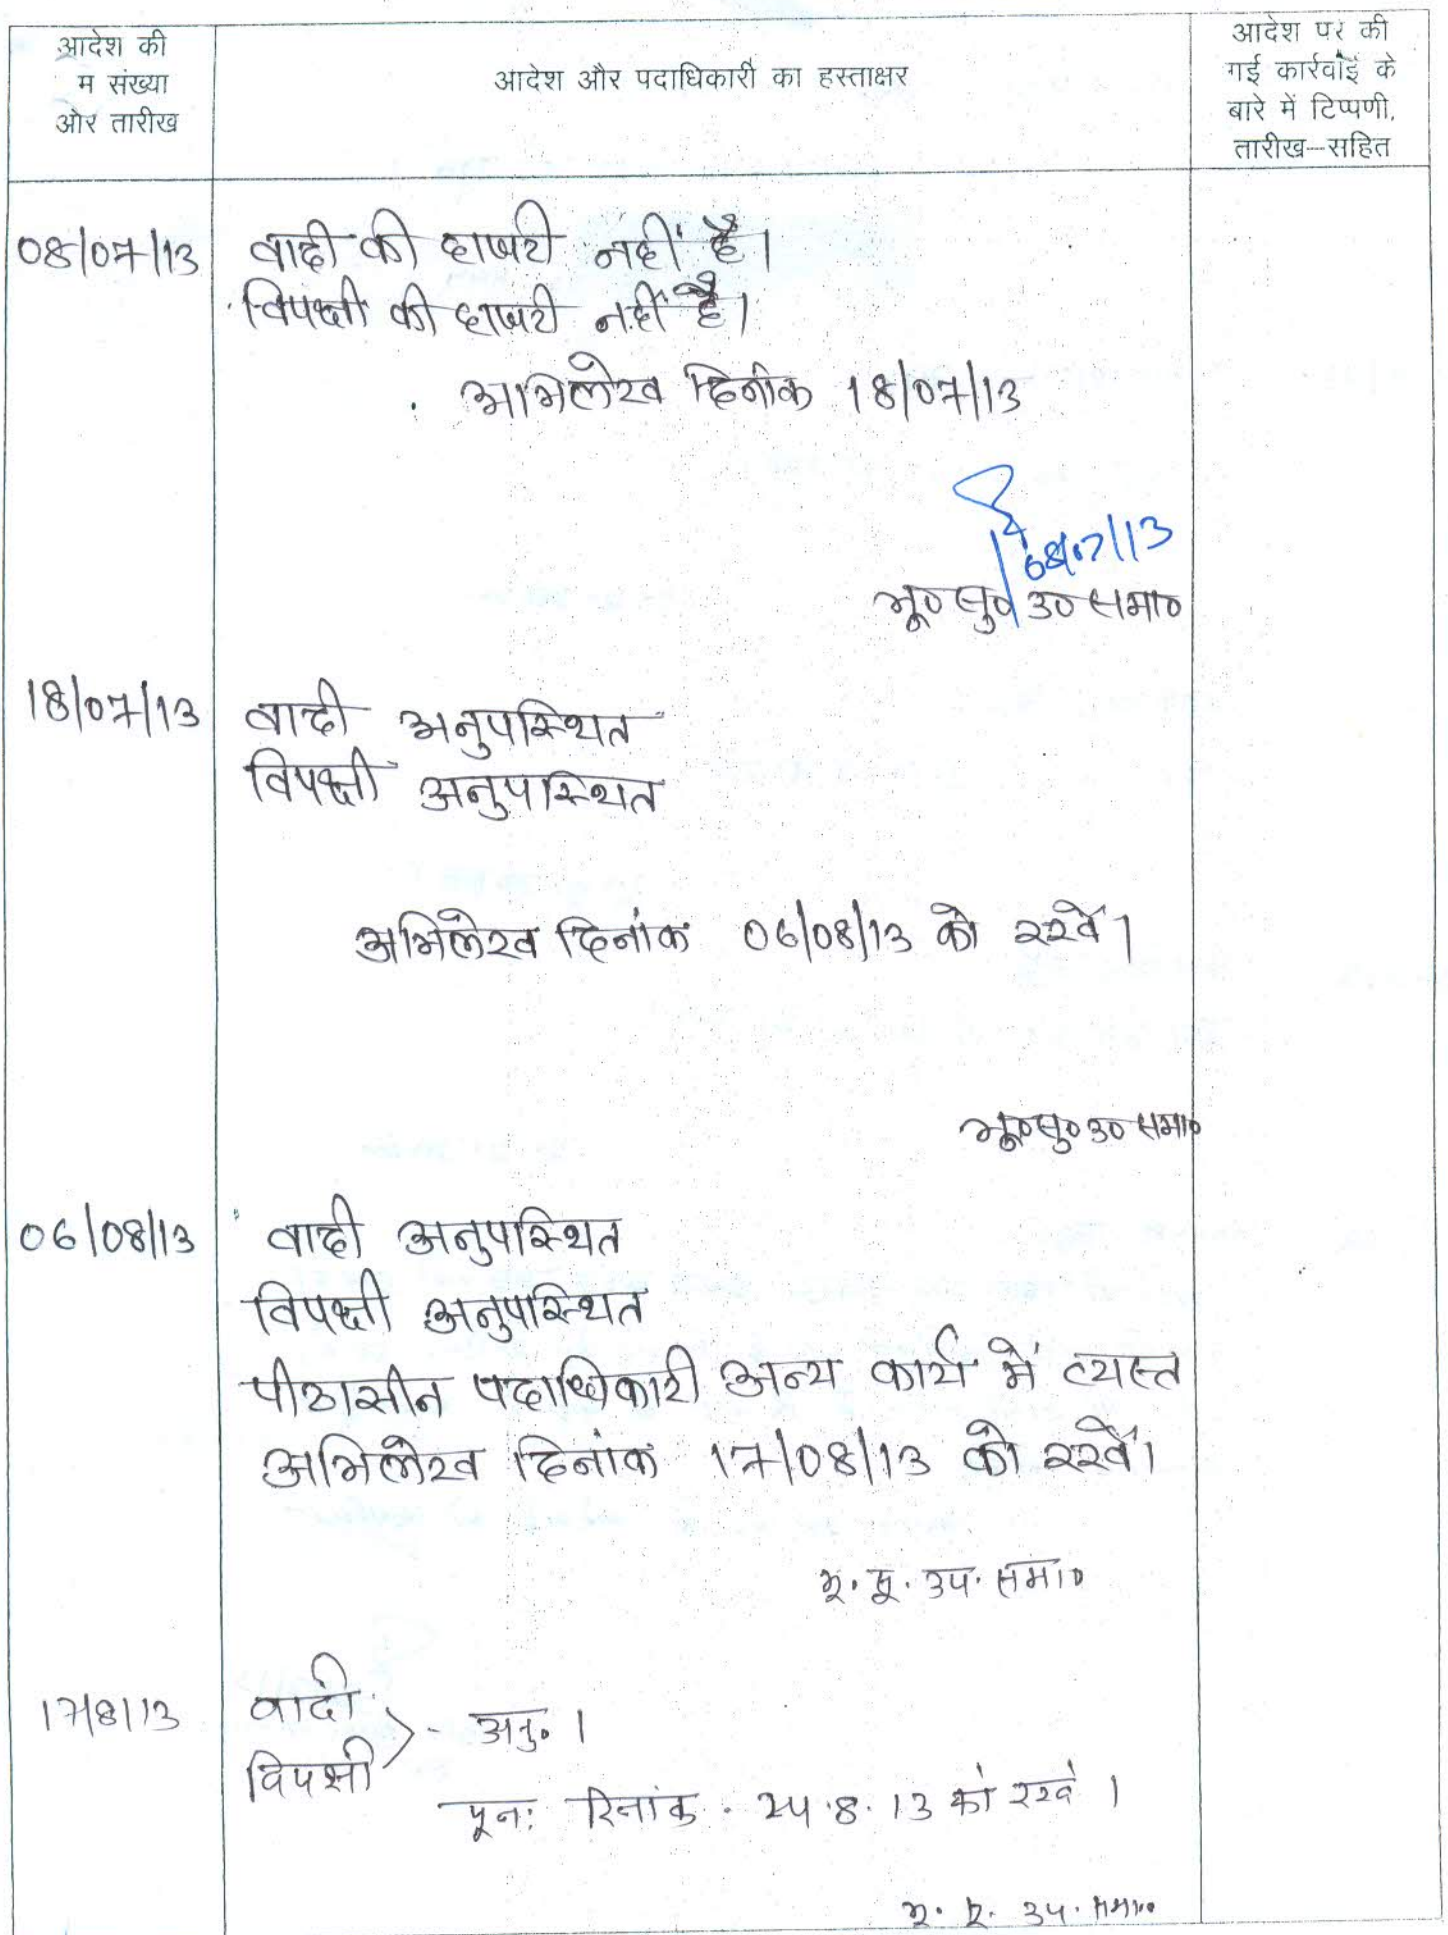 आदेश की
म संख्या
और तारीख
आदेश और पदाधिकारी का हस्ताक्षर
आदेश पर की
गई कार्रवाई के
बारे में टिप्पणी,
तारीख-सहित
08/07/13 वादी की हाजरी नहीं है।
विपक्षी की हाजरी नहीं है।
अभिलेख दिनांक 18/07/13
08/07/13
भू० सु० उ० समा०
18/07/13 वादी अनुपस्थित
विपक्षी अनुपस्थित
अभिलेख दिनांक 06/08/13 को रखें।
भू० सु० उ० समा०
06/08/13 वादी अनुपस्थित
विपक्षी अनुपस्थित
पीठासीन पदाधिकारी अन्य कार्य में व्यस्त
अभिलेख दिनांक 17/08/13 को रखें।
भू. सु. उप. समा०
17/8/13 वादी
विपक्षी - अनु० ।
पून: दिनांक . 24.8.13 को रखे ।
भू. सु. उप. समा०